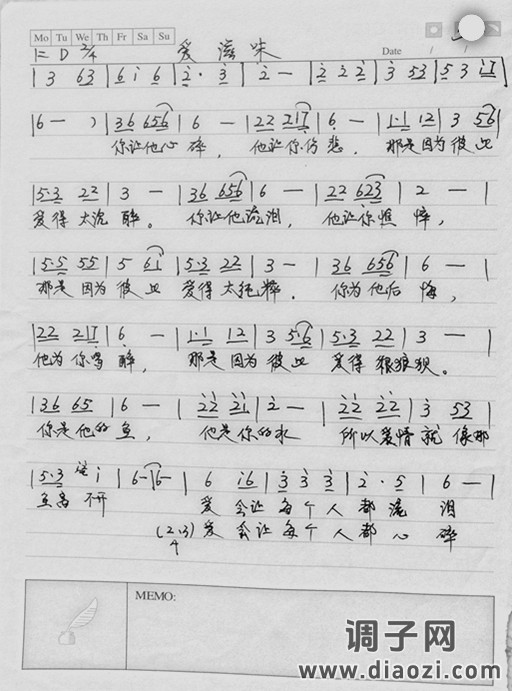 Mo Tu We Th Fr Sa Su
Date / /
1=D 2/4 爱滋味
|3 63|6 i 6|2· 3|2 —|2 2 2|3 53|5 3 i7|
|6 — )|36 656|6 —|22 217|6 —|1·1 12|3 56|
你让他心碎, 他让你伤悲, 那是因为彼此
|5·3 22|3 —|36 656|6 —|22 623|2 —|
爱得太沉醉. 你让他流泪, 他让你憔悴,
|5·5 55|5 61|5·3 22|3 —|36 656|6 —|
那是因为彼此 爱得太纯粹. 你为他后悔,
|22 217|6 —|1·1 12|3 5·6|5·3 22|3 —|
他为你喝醉, 那是因为彼此 爱得狠狼狈。
|36 65|6 —|22 21|2 —|22 22|3 53|
你是他的鱼, 他是你的水 所以爱情就像那
|5·3 i|6 —|6|6 i6|3 3 3 3|2· 5|6 —|
鱼离不开 爱会让每个人都流泪
(2·3) 爱会让每个人都心碎
4
MEMO:
调子网
www.diaozi.com